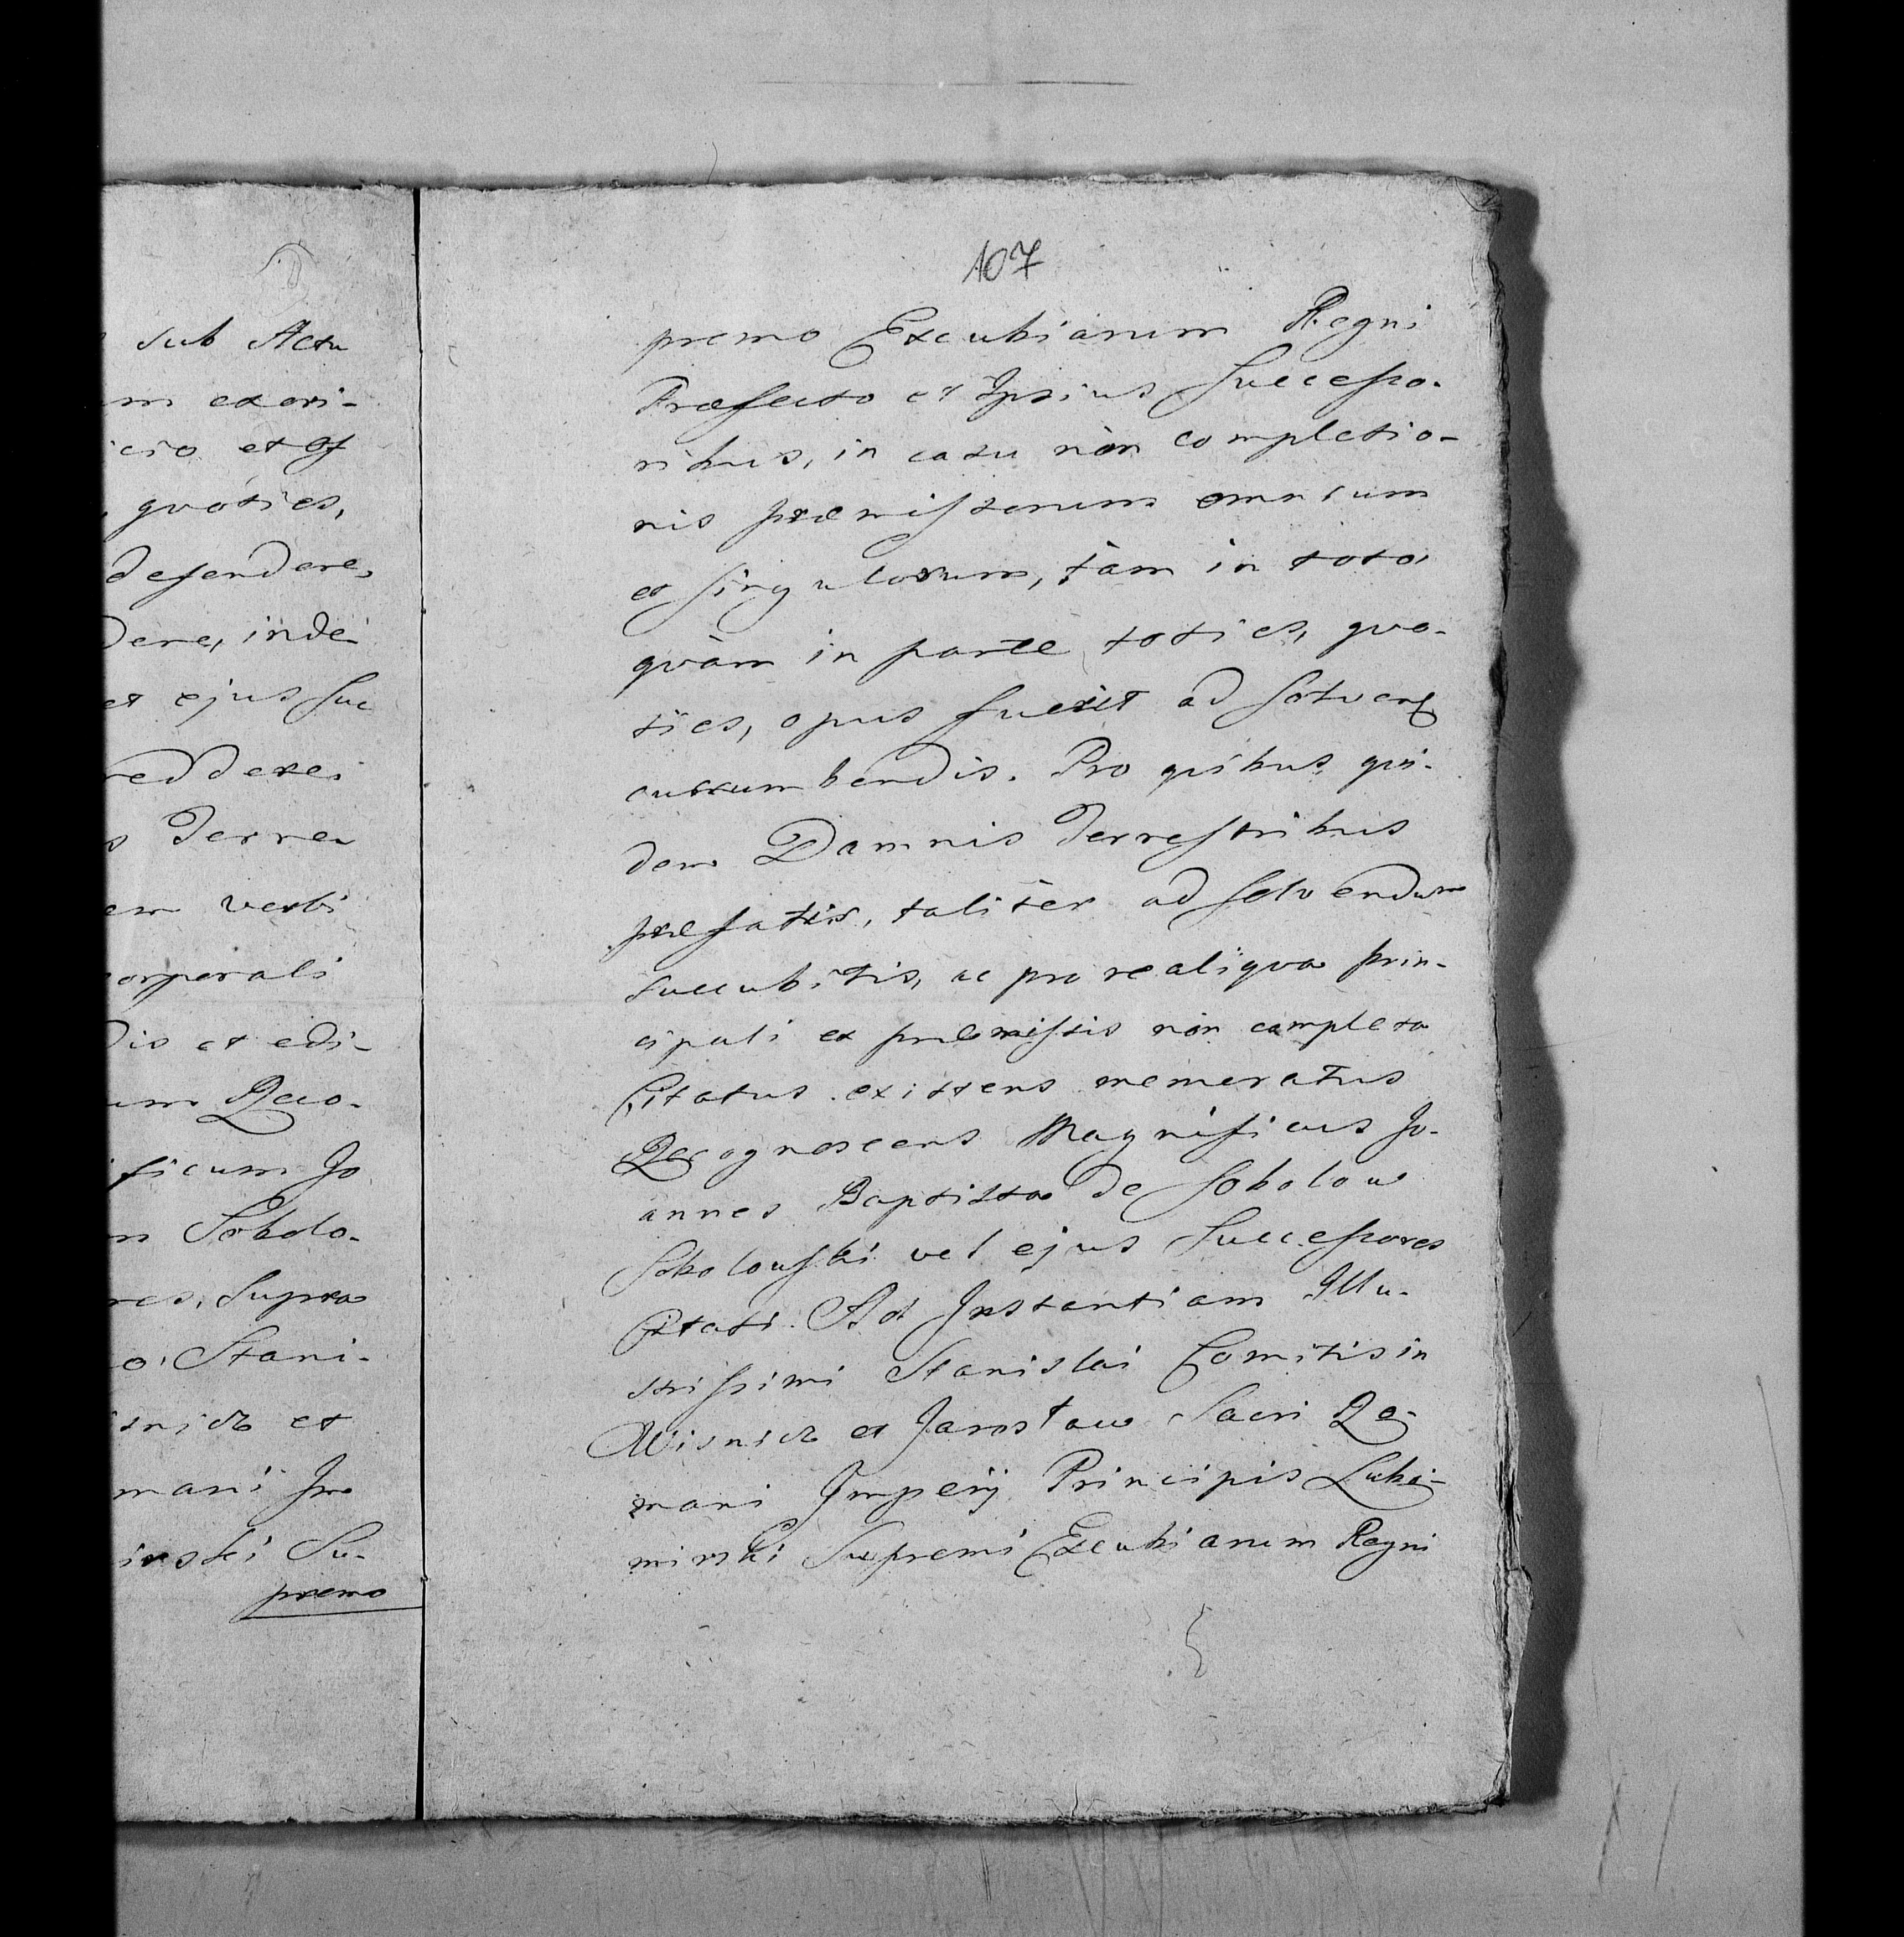 sub Actu
m exori-
cio et Of
, qvoties,
defendere,
dere, inde
et ejus Suc
reddere
s Terre
em verbi
corporali
dis et edi-
um Reco-
ficum Jo
m Sokolo-
res, Supra
o Stani-
snicz et
mani Im
irski Su-
premo
107
premo Excubiarum Regni
Præfecto et Ipsius Successo-
ribus, in casu nòn completio-
nis præmissorum omnium
et Singulorum, tàm in toto,
qvàm in parte, toties, qvo-
ties, opus fuerit ad Solvend
cucumbendis. Pro qvibus qvi-
dem Damnis Terrestribus
præfatis, taliter ad Solvendum
Succubitis, ac pro re aliqva prin-
cipali ex præmissis nòn completa
Citatus existens memeratus
Recognoscens Magnificus Jo-
annes Baptista de Sokolow
Sokolowski vel ejus Successores
Citati. Ad Instantiam Illu-
strissimi Stanislai Comitis in
Wisnicz et Jarosław Sacri Ro-
mani Imperij Principis Lubo-
mirski Supremi Excubiarum Regni